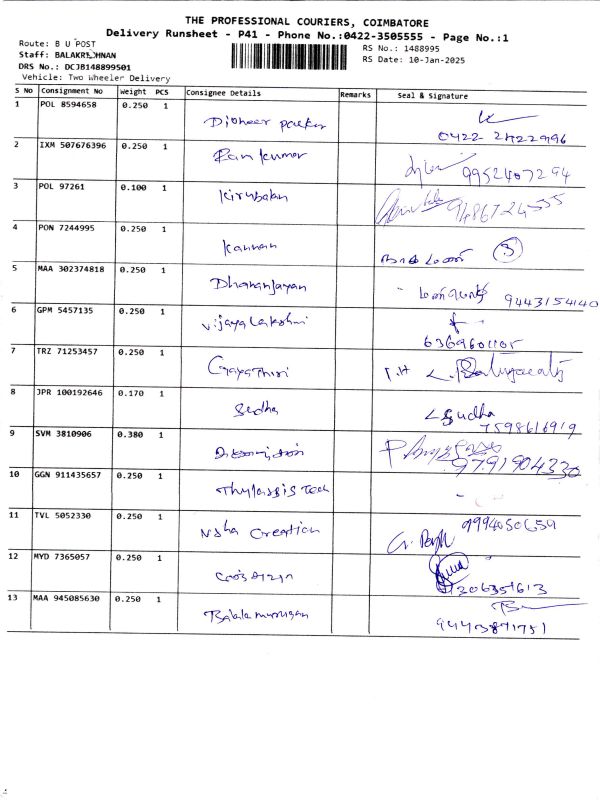 THE PROFESSIONAL COURIERS, COIMBATORE
Delivery Runsheet - P41 - Phone No.:0422-3505555 - Page No.:1
Route: B U POST
Staff: BALAKRISHNAN
DRS No.: DCJB148899501
Vehicle: Two Wheeler Delivery
RS No.: 1488995
RS Date: 10-Jan-2025
S No Consignment No Weight PCS Consignee Details Remarks Seal & Signature
1 POL 8594658 0.250 1 Pioneer packer
0422 2422996
2 IXM 507676396 0.250 1 Ram kumar 9952407294
3 POL 97261 0.100 1 Kirubakn 9486724555
4 PON 7244995 0.250 1 Kannan 3
5 MAA 302374818 0.250 1 Dhananjayan 9443154140
6 GPM 5457135 0.250 1 Vijaya Lakshmi
6369601105
7 TRZ 71253457 0.250 1 Gayathiri
8 JPR 100192646 0.170 1 Sudha L Sudha
7598616919
9 SVM 3810906 0.380 1 9791904330
10 GGN 911435657 0.250 1 Tech
11 TVL 5052330 0.250 1 Nsha Creation 9994050659
12 MYD 7365057 0.250 1
13 MAA 945085630 0.250 1 Balamurugan
9443871751